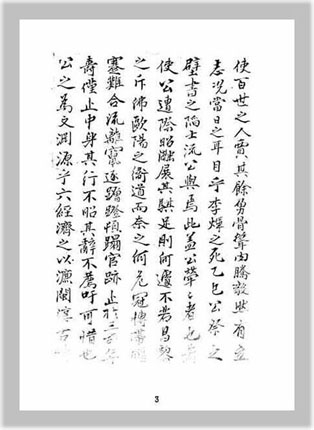 使百世之人賈其餘勇聳聲由騰發然有立
志況當日之耳目乎李煒之死乙巳公祭之
壁書之陷士流公與焉此蓋公犖犖者也
使公遭際昭融展其驥足則何遽不若昌黎
之斥佛歐陽之衛道而奈之何危冠博帶
蹇難合流離竄逐蹭蹬頓蹋官跡止於三
壽僅止中身其行不昭其辭不薦吁可惜也
公之為文淵源乎六經濟之以濂閩深古
3